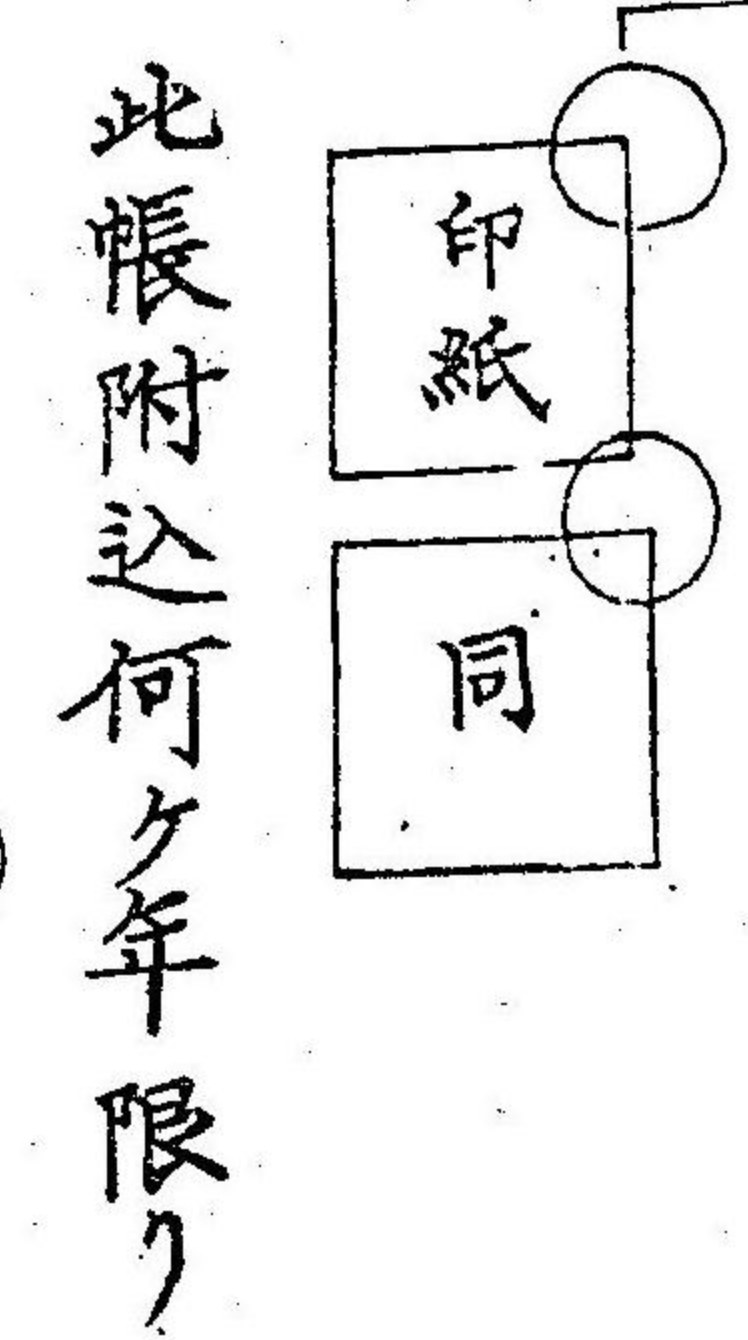 印紙
同
此帳附込何ケ年限リ